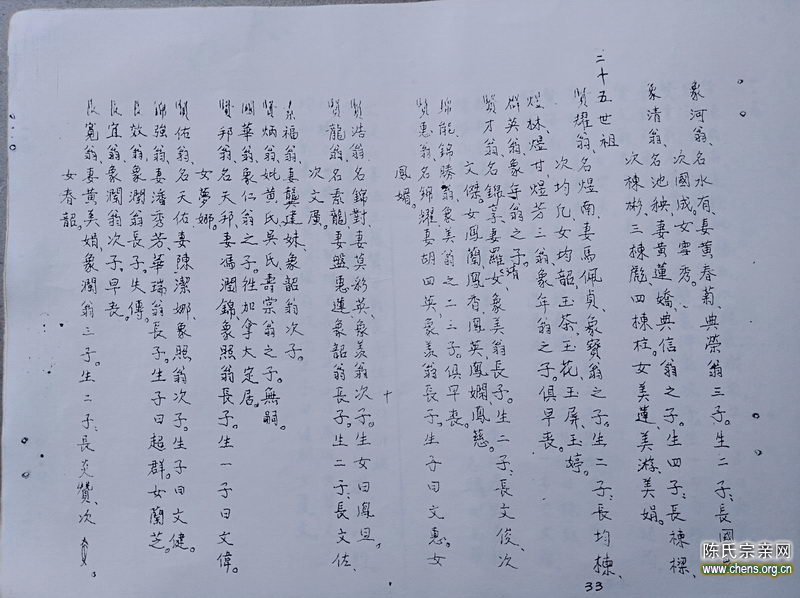 象河翁、名水有、妻黃春菊、典榮翁三子。生二子、長國
次國成。女雲秀。
象清翁、名池秧、妻黃蓮嬌、典信翁之子。生四子、長棟樑、
次棟彬、三棟彪、四棟柱。女美蓮、美游、美娟。
二十五世祖
賢耀翁、名煜南、妻馬佩貞、象寶翁之子。生二子、長均棟、
次均凡、女均韶、玉茶、玉花、玉屏、玉婷。
煜林、煜甘、煜芳三翁、象年翁之子。俱早喪。
群英翁、象年翁之子。
賢才翁、名錦亭、妻羅女、象美翁長子。生二子、長文俊、次
文傑。女鳳蘭、鳳香、鳳英、鳳嫻、鳳慈。
錦能、錦勝翁、象美翁之二三子。俱早喪。
賢惠翁、名錦耀、妻胡四英、象羨翁長子。生子曰文惠。女
鳳媚。
賢浩翁、名錦對、妻莫彩英、象羨翁次子。生女曰鳳旦。
賢龍翁、名素龍、妻盤惠蓮、象韶翁長子。生二子、長文佐、
次文展。
素福翁、妻龔建妹、象韶翁次子。
賢炳翁、妣黃氏、吳氏、壽棠翁之子。無嗣。
國華翁、象仁翁之子。往加拿大定居。
賢邦翁、名天邦、妻馮潤錦、象照翁長子。生一子曰文偉。
女夢娜。
賢佑翁、名天佑、妻陳潔娜、象照翁次子。生子曰文健。
錦強翁、妻潘秀芳、華瑞翁長子。生子曰超群。女蘭芝。
長效翁、象潤翁長子。失傳。
長宜翁、象潤翁次子。早喪。
長寬翁、妻黃美娟、象潤翁三子。生二子、長炎贊、次
女春韶。
33
陈氏宗亲网
www.chens.org.cn